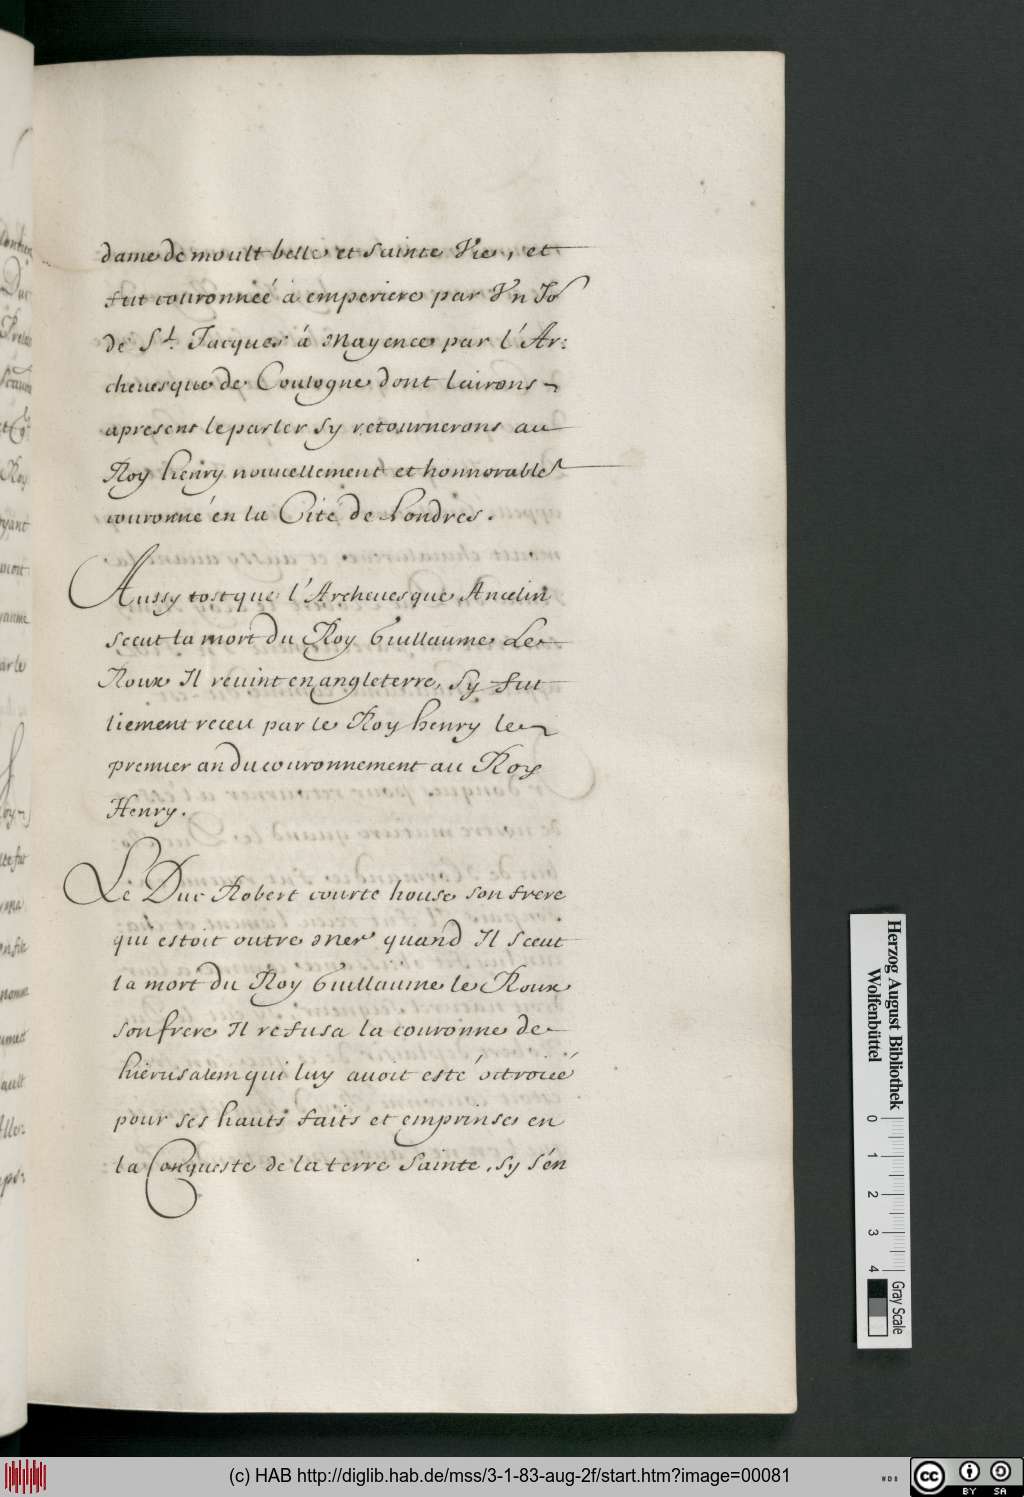 dame de moult belle et sainte Vie, et
fut couronneé a emperiere par Vn Jor
de St. Jacques á Mayence par l'Ar:
cheuesque de Coulogne dont lairons
apresent le parler sy retournerons au
Roy henry nouuellement et honnorable
couronné en la Cité de Londres.
Aussy tost que l'Archeuesque Ancelin
sceut la mort du Roy Guillaume Le
Roux Il reuint en angleterre, sy fut
liement receu par le Roy henry le
premier an du couronnement au Roy
Henry.
Le Duc Robert courte house son frere
qui estoit outre mer quand Il sceut
la mort du Roy Guillaume le Roux
son frere Il refusa la couronne de
hiërusalem qui luy auoit esté octroieé
pour ses hauts faits et emprinses en
la Conqueste de la terre Sainte, sy s'én
Herzog August Bibliothek
Wolfenbüttel
0 1 2 3 4
Gray Scale
(c) HAB http://diglib.hab.de/mss/3-1-83-aug-2f/start.htm?image=00081
WDB
cc BY SA